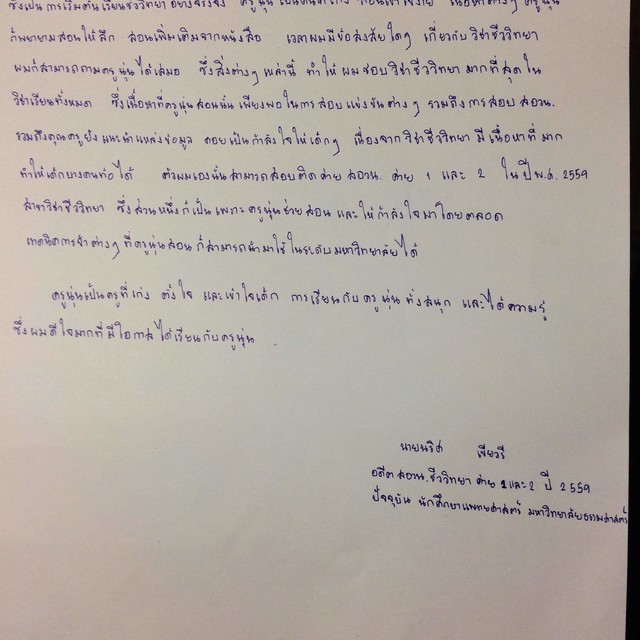 ซึ่งเป็นการเริ่มต้นเรียนชีววิทยาอย่างจริงจัง ครูนุ่นเป็นคนที่เก่ง สอนเข้าใจง่าย เนื้อหาต่างๆ ครูนุ่น
ก็พยายามสอนให้ลึก สอนเพิ่มเติมจากหนังสือ เวลาผมมีข้อสงสัยใดๆ เกี่ยวกับวิชาชีววิทยา
ผมก็สามารถถามครูนุ่นได้เสมอ ซึ่งสิ่งต่างๆ เหล่านี้ ทำให้ผมชอบวิชาชีววิทยามากที่สุดใน
วิชาเรียนทั้งหมด ซึ่งเนื้อหาที่ครูนุ่นสอนนั้น เพียงพอในการสอบแข่งขันต่างๆ รวมถึงการสอบ สอวน.
รวมถึงคุณครูยังแนะนำแหล่งข้อมูล คอยเป็นกำลังใจให้เด็กๆ เนื่องจากวิชาชีววิทยา มีเนื้อหาที่มาก
ทำให้เด็กบางคนท้อได้ ตัวผมเองนั้นสามารถสอบติดค่าย สอวน. ค่าย 1 และ 2 ในปีพ.ศ. 2559
สาขาวิชาชีววิทยา ซึ่งส่วนหนึ่งก็เป็นเพราะครูนุ่นช่วยสอน และให้กำลังใจมาโดยตลอด
เทคนิคการจำต่างๆ ที่ครูนุ่นสอน ก็สามารถนำมาใช้ในระดับมหาวิทยาลัยได้
ครูนุ่นเป็นครูที่เก่ง ตั้งใจ และเข้าใจเด็ก การเรียนกับครูนุ่น ทั้งสนุก และได้ความรู้
ซึ่งผมดีใจมากที่มีโอกาสได้เรียนกับครูนุ่น
นายนริศ เขียวรี
อดีต สอวน. ชีววิทยา ค่าย 1 และ 2 ปี 2559
ปัจจุบัน นักศึกษาแพทยศาสตร์ มหาวิทยาลัยธรรมศาสตร์